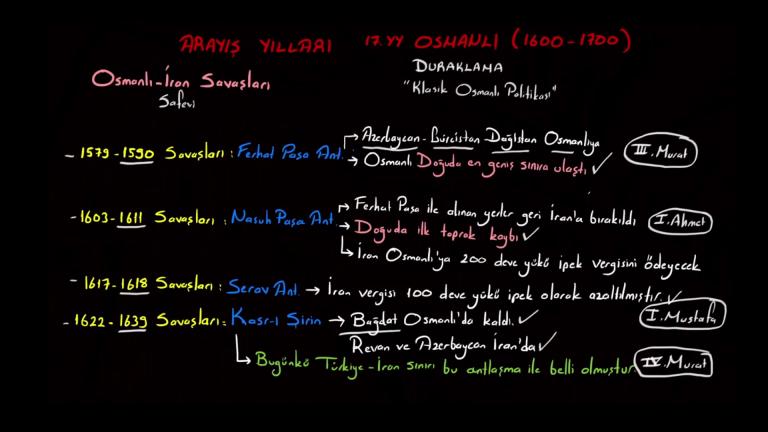 ARAYIŞ YILLARI 17.YY OSMANLI (1600-1700)
Osmanlı-İran Savaşları
Safevi
DURAKLAMA
"Klasik Osmanlı Politikası"
- 1579-1590 Savaşları: Ferhat Paşa Ant. → Azerbaycan-Gürcistan-Dağıstan Osmanlıya
→ Osmanlı Doğuda en geniş sınıra ulaştı ✓
III. Murat
- 1603-1611 Savaşları: Nasuh Paşa Ant. → Ferhat Paşa ile alınan yerler geri İran'a bırakıldı
→ Doğuda ilk toprak kaybı ✓
→ İran Osmanlı'ya 200 deve yükü ipek vergisini ödeyecek
I. Ahmet
- 1617-1618 Savaşları: Serav Ant. → İran vergisi 100 deve yükü ipek olarak azaltılmıştır. ✓
- 1622-1639 Savaşları: Kasr-ı Şirin → Bağdat Osmanlı'da kaldı. ✓
I. Mustafa
Revan ve Azerbaycan İran'da ✓
→ Bugünkü Türkiye-İran sınırı bu antlaşma ile belli olmuştur.
IV. Murat